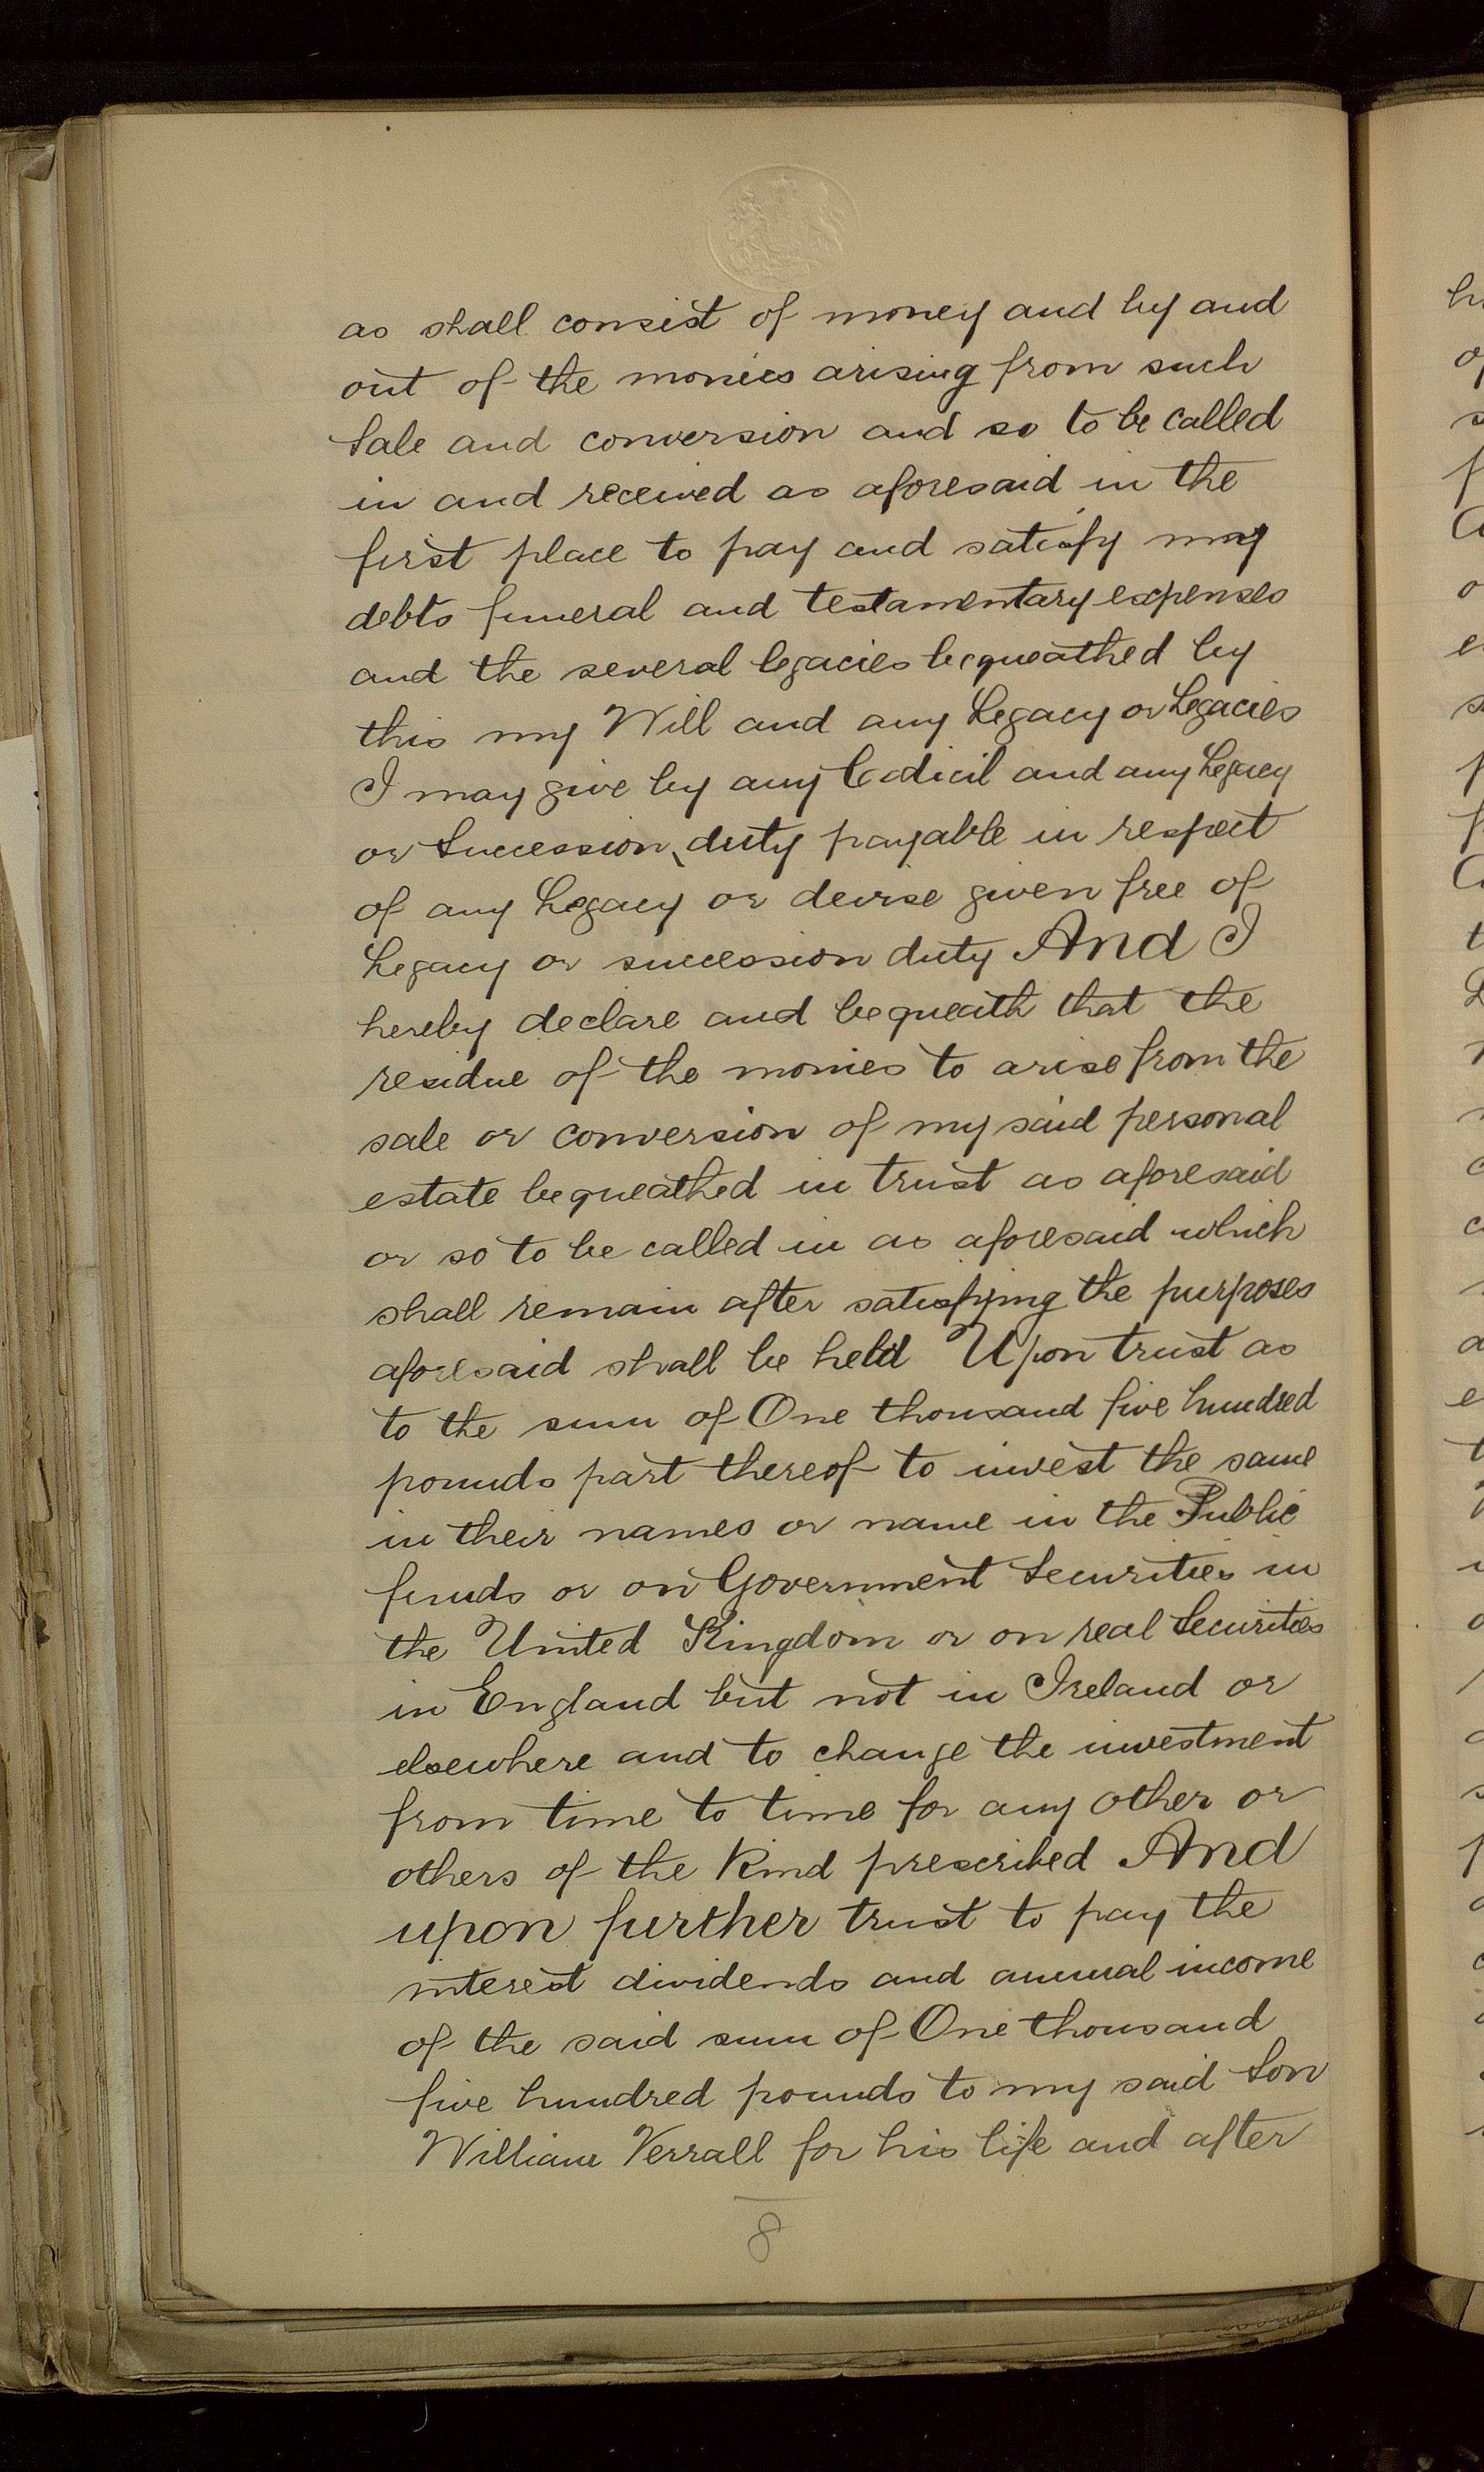 as shall consist of money and by and
out of the monies arising from such
Sale and conversion and so to be called
in and received as aforesaid in the
first place to pay and satisfy my
debts funeral and testamentary expenses
and the several legacies bequeathed by
this my Will and any Legacy or Legacies
I may give by any Codicil and any Legacy
or Succession duty payable in respect
of any Legacy or devise given free of
Legacy or succession duty And I
hereby declare and bequeath that the
residue of the monies to arise from the
sale or conversion of my said personal
estate bequeathed in trust as aforesaid
or so to be called in as aforesaid which
shall remain after satisfying the purposes
aforesaid shall be held Upon trust as
to the sum of One thousand five hundred
pounds part thereof to invest the same
in their names or name in the Public
funds or on Government Securities in
the United Kingdom or on real Securities
in England but not in Ireland or
elsewhere and to change the investment
from time to time for any other or
others of the Kind prescribed And
upon further trust to pay the
interest dividends and annual income
of the said sum of One thousand
five hundred pounds to my said Son
William Verrall for his life and after
8